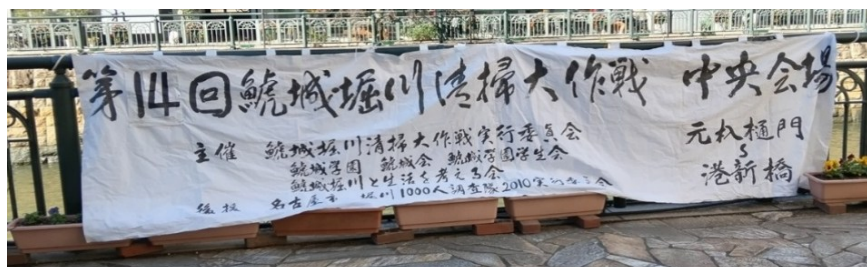 第14回鯱城堀川清掃大作戦 中央会場
主催 鯱城堀川清掃大作戦実行委員会
鯱城学園 鯱城会 鯱城学園学生会
鯱城堀川と生活を考える会
名古屋市 堀川1000人調査隊2010実行委員会
元杁樋門
港新橋